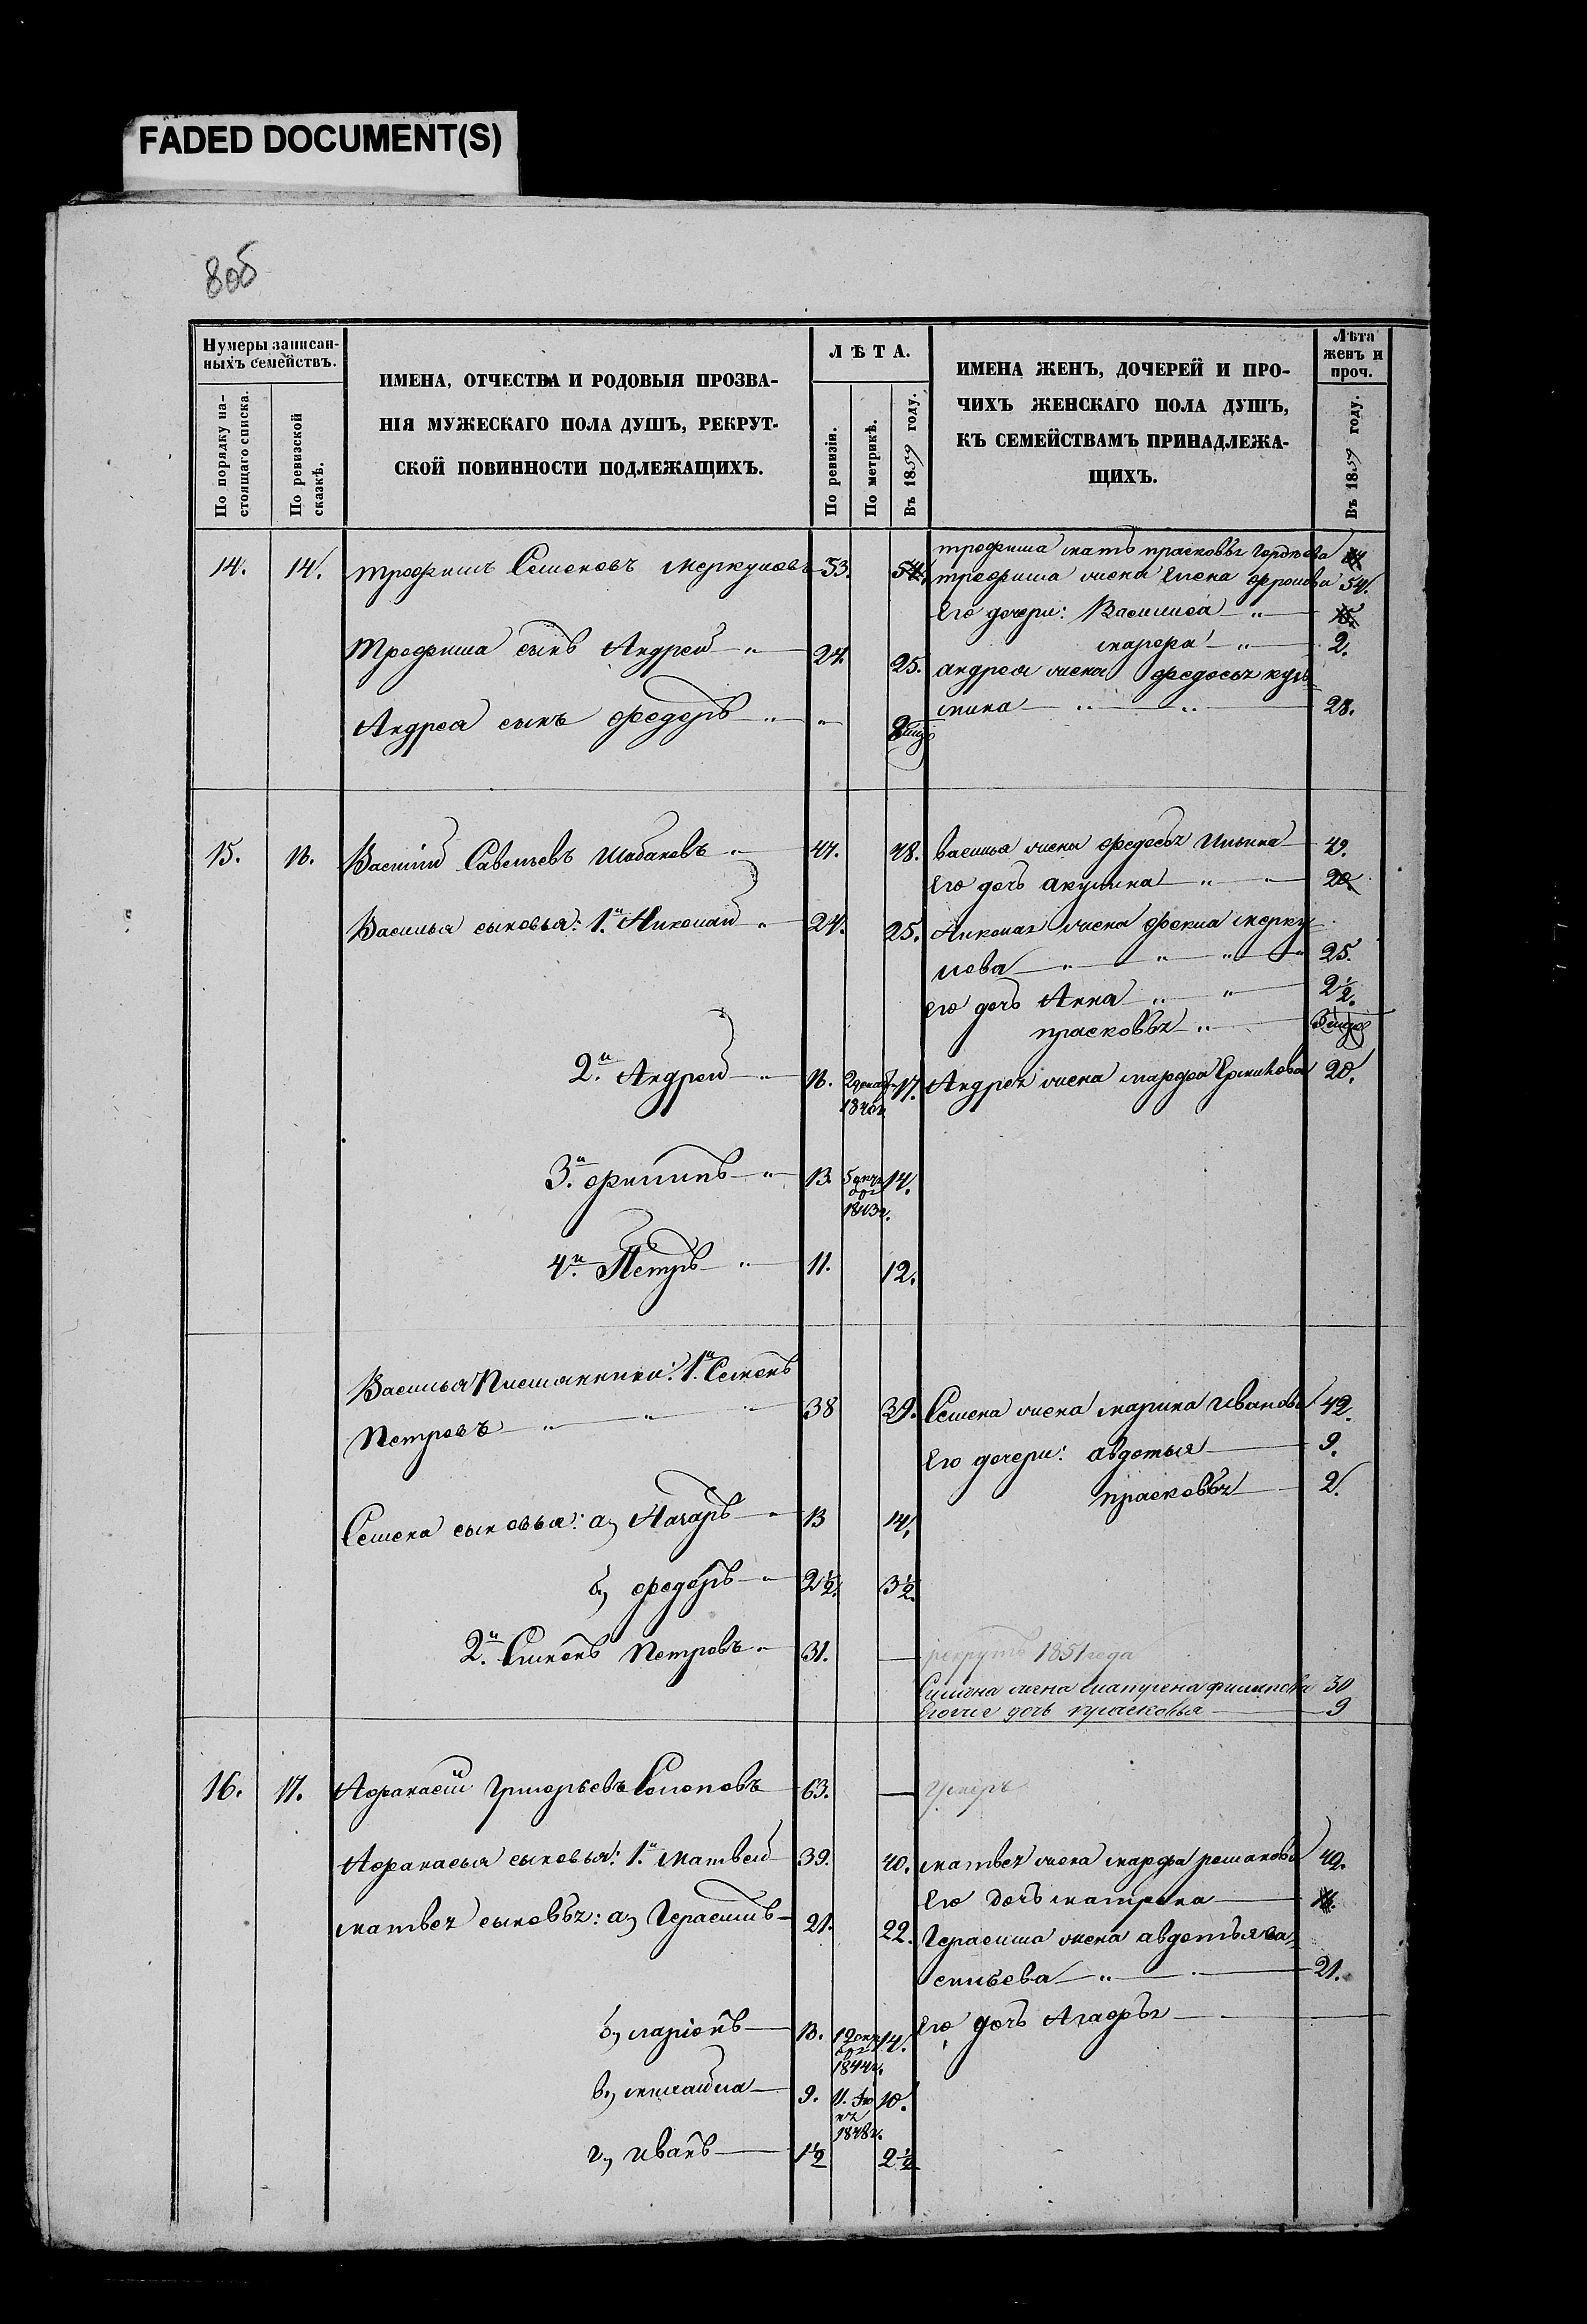 FADED DOCUMENT(S)
8об
Нумеры записан-
ныхъ семействъ.
По порядку на-
стоящаго списка.
По ревизской
сказкѣ.
ИМЕНА, ОТЧЕСТВА И РОДОВЫЯ ПРОЗВА-
НІЯ МУЖЕСКАГО ПОЛА ДУШЪ, РЕКРУТ-
СКОЙ ПОВИННОСТИ ПОДЛЕЖАЩИХЪ.
ЛѢТА.
По ревизіи.
По метрикѣ.
Въ 1859 году.
ИМЕНА ЖЕНЪ, ДОЧЕРЕЙ И ПРО-
ЧИХЪ ЖЕНСКАГО ПОЛА ДУШЪ,
КЪ СЕМЕЙСТВАМЪ ПРИНАДЛЕЖА-
ЩИХЪ.
Лѣта
женъ и
проч.
Въ 1859 году.
трофима мать прасковья
14. 14. трофимъ Семеновъ меркуловъ 53. 54. трофима жена Елена фролова 54.
Его дочери: Василиса "
марфа " 2.
Трофима сынъ Андрей " 24. 25. андрея жена федосья кузь
мина " " 28.
Андрея сынъ федоръ " "
15. 16. Василій Савельевъ Шабановъ " 47. 48. василья жена федосья Ильина 49.
Его дочь акулина " " 20
Василья сыновья: 1й Николай " 24. 25. Николая жена фекла мерку
лова " " " " 25.
его дочь Анна " " 2½.
прасковья "
2й Андрей " 16. 2 декаб 1840г 17. Андрея жена марфа Ермилова 20.
3й филипъ " 13. 5 октя
бря
1843г. 14.
4й Петръ " 11. 12.
Василья Племянники: 1й Семенъ
Петровъ " " " 38 39. Семена жена марина Иванова 42.
Его дочери: авдотья 9.
прасковья 2.
Семена сыновья: а, Назаръ " 13 14.
б, федоръ " 2½. 3½.
2й Симонъ Петровъ " 31. — рекрутъ 1851 года
Симона жена филипова 30
Егоже дочь прасковья 9
16. 17. Афанасій Григорьевъ Солоповъ 63. — Умеръ
Афанасья сыновья: 1й матвей 39. 40. матвея жена марфа романова 42.
Его дочь матрена
матвея сыновья: а, Герасимъ 21. 22. Герасима жена авдотья ва
сильева " 21.
Его дочь Агафья
б, ларіонъ 13. 12 октя
бря
1844г. 14.
в, михайла 9. 11. Ію
ня
1848г. 10.
г, иванъ 1½ 2½